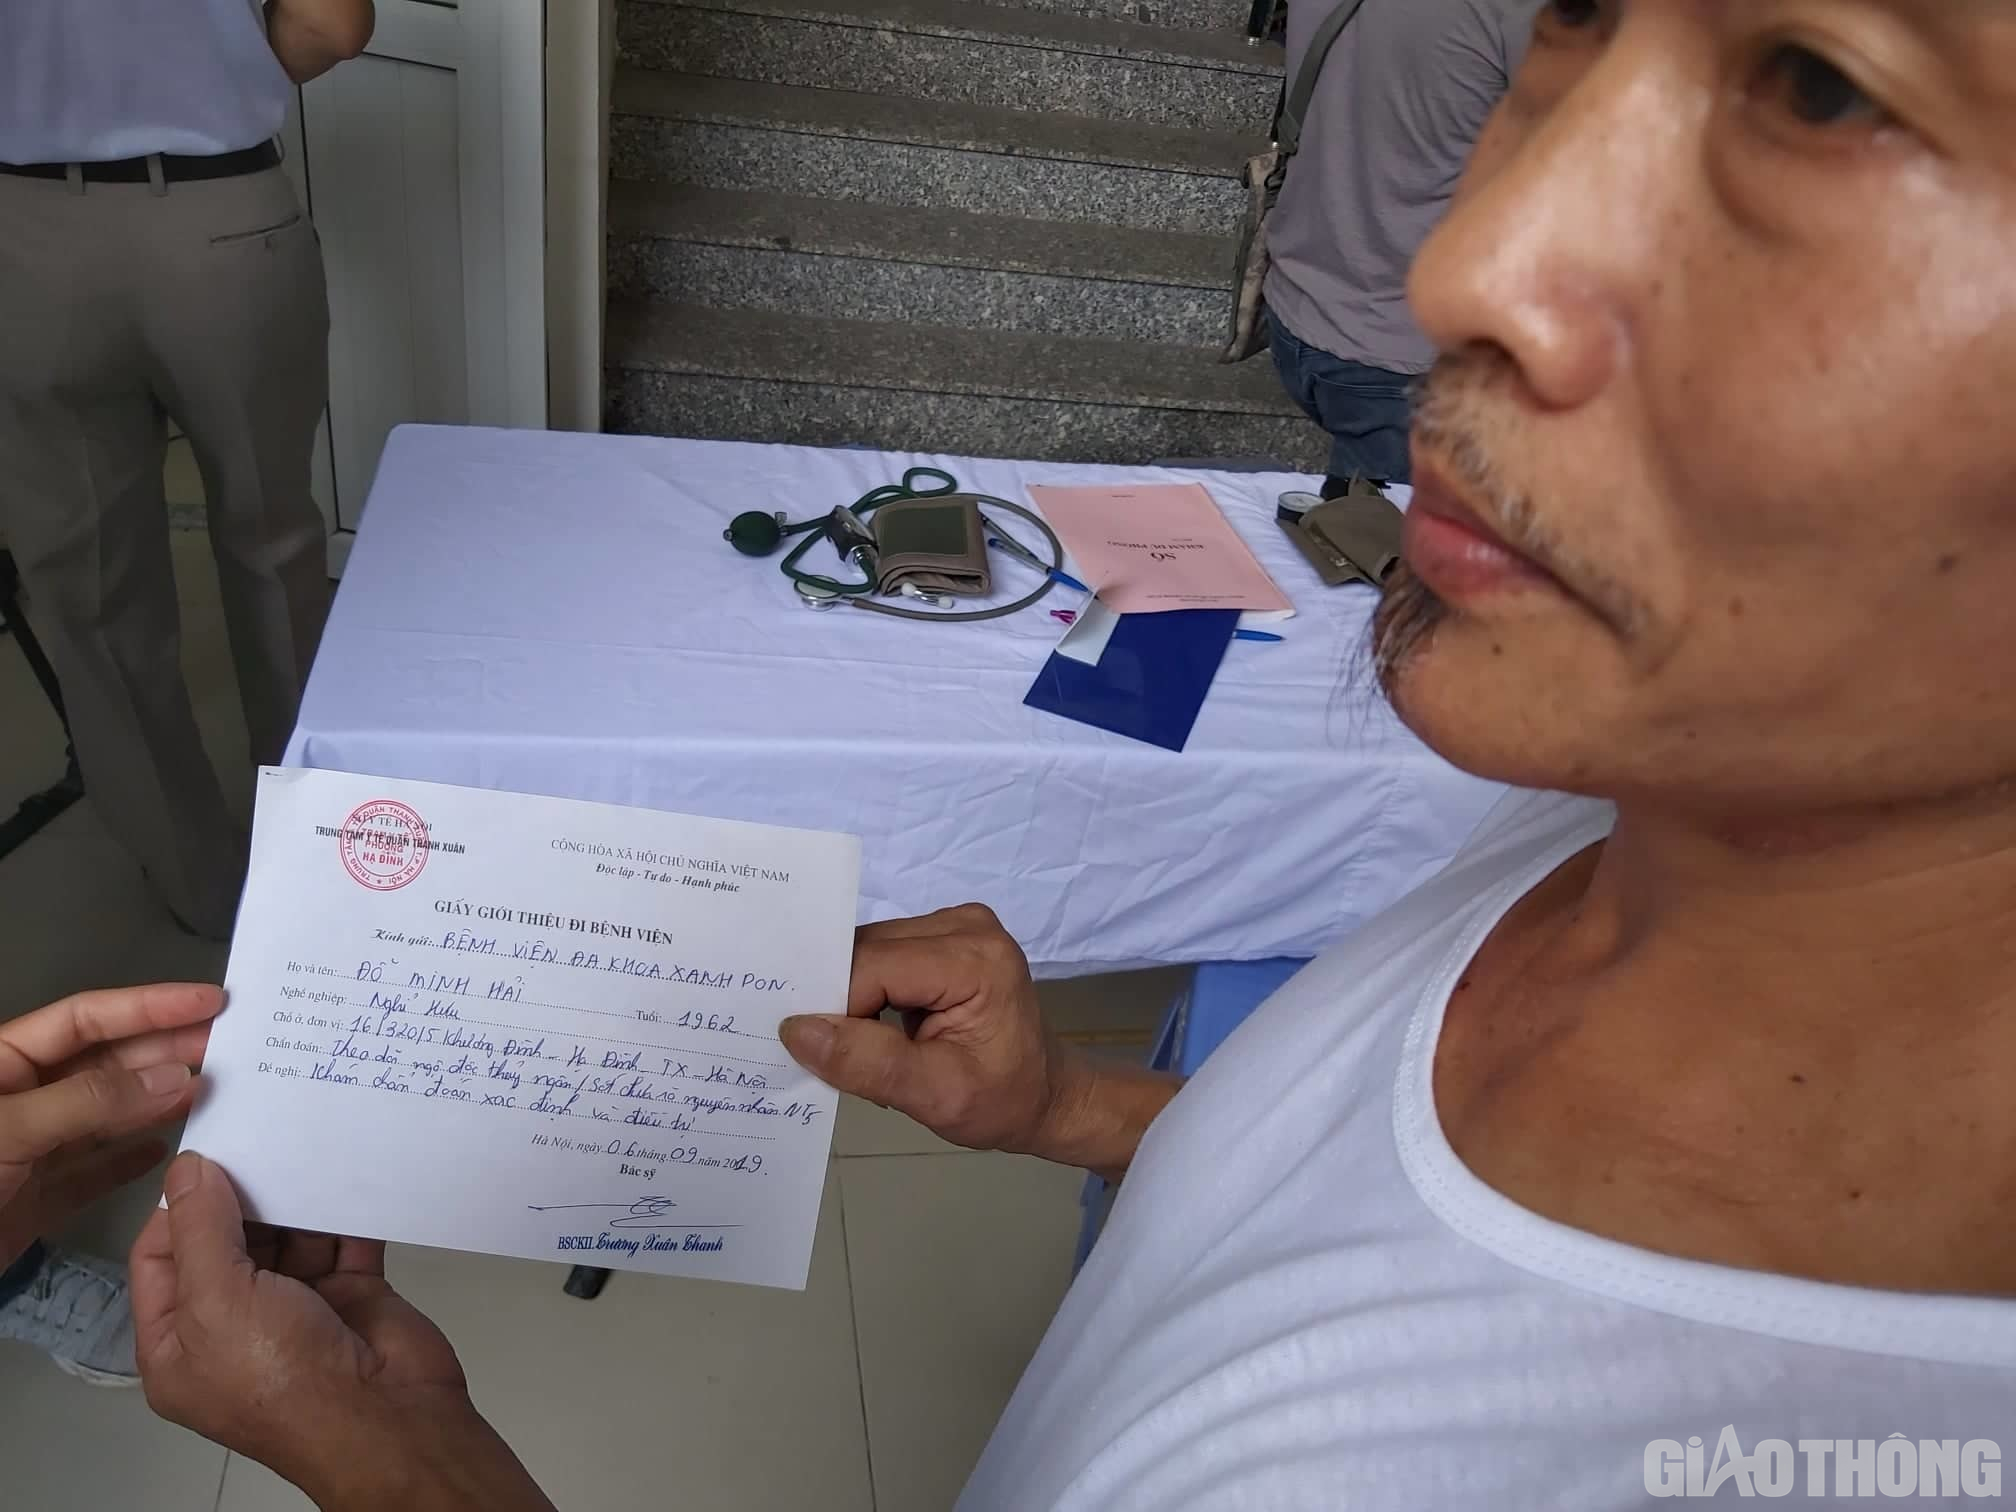 SỔ
KHÁM DỰ PHÒNG
Y TẾ HÀ NỘI
TRUNG TÂM Y TẾ QUẬN THANH XUÂN
TRẠM Y TẾ
PHƯỜNG
HẠ ĐÌNH
CỘNG HÒA XÃ HỘI CHỦ NGHĨA VIỆT NAM
Độc lập - Tự do - Hạnh phúc
GIẤY GIỚI THIỆU ĐI BỆNH VIỆN
Kính gửi: BỆNH VIỆN ĐA KHOA XANH PON.
Họ và tên: ĐỖ MINH HẢI
Nghề nghiệp: Nghỉ hưu Tuổi: 1962
Chỗ ở, đơn vị: 16/320/5 Khương Đình - Hạ Đình - TX - Hà Nội
Chẩn đoán: Theo dõi ngộ độc thủy ngân / Sốt chưa rõ nguyên nhân NT5
Đề nghị: Khám chẩn đoán xác định và điều trị
Hà Nội, ngày 06 tháng 09 năm 2019.
Bác sỹ
BSCKII. Trương Xuân Thanh
GIAOTHÔNG